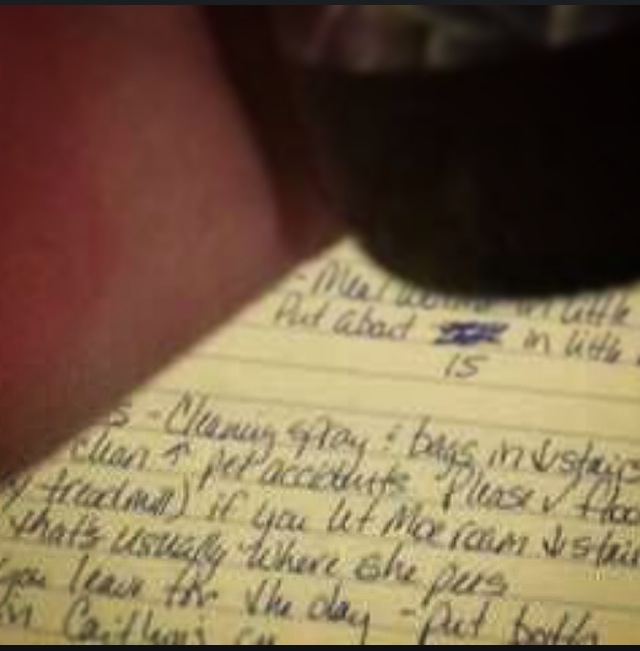 - Meal in little
Put about in little
15
- Cleaning spray & bags in ↓stairs
clean ↑ pet accidents. Please ✓ floo
treadmill) if you let Moe roam ↓stai
that's usually where she pees
you leave for the day - put both
in Caitlin's